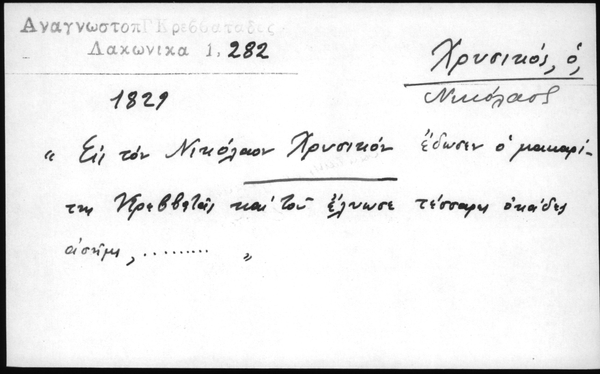 Αναγνωστοπ Γ Κρεββαταδες
Λακωνικα 1, 282
Χρυσικός, ὁ,
Νικόλαος
1829
" Εἰς τὸν Νικόλαον Χρυσικόν ἔδωσεν ὁ μακαρί-
της Κρεββατᾶς καὶ τοῦ ἔλυωσε τέσσαρες ὀκάδες
ἀσῆμι, ......... "